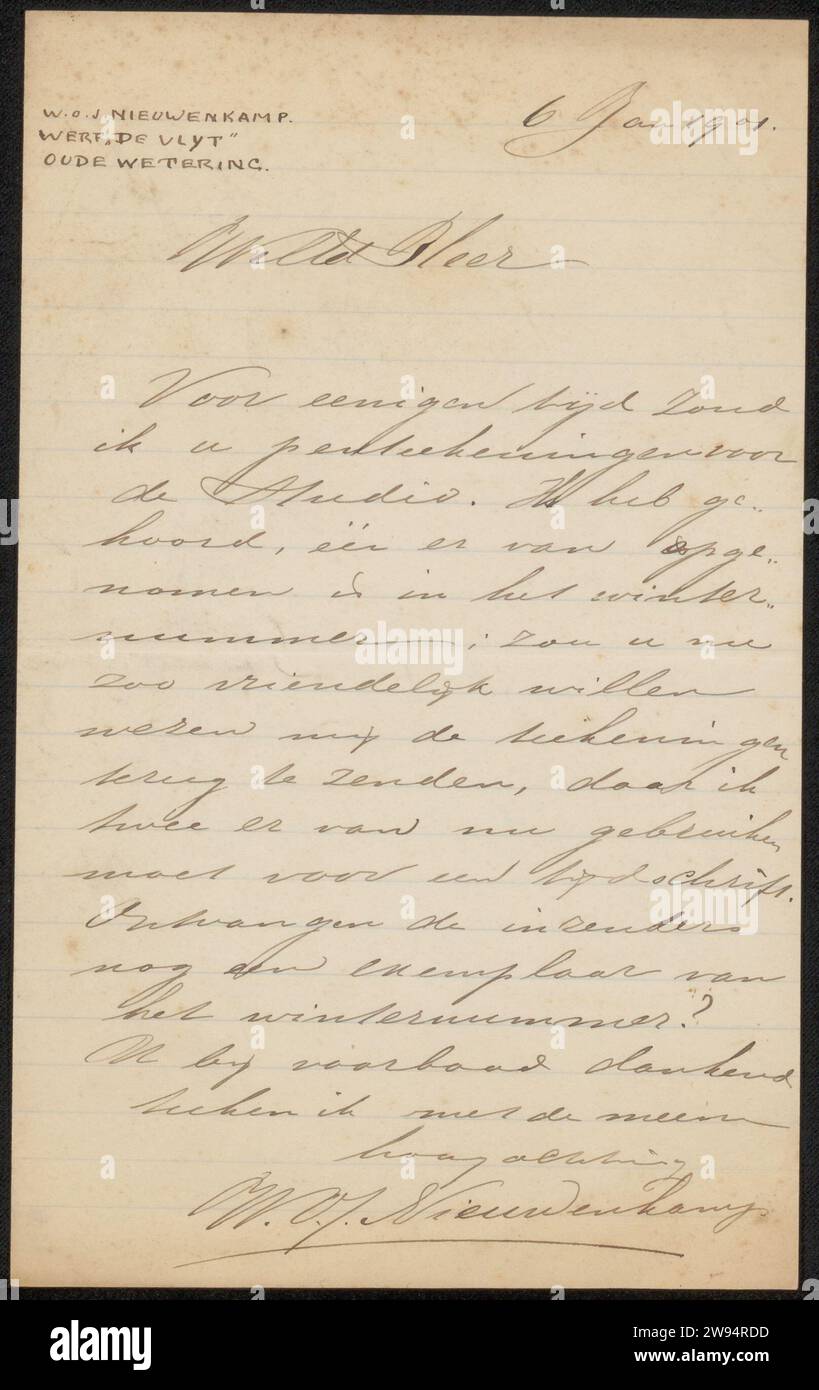 W.O.J NIEUWENKAMP.
WERF „DE VLYT”
OUDE WETERING.
6 Jan 1901.
WelEd Heer
Voor eenigen tijd zond
ik u penteekeningen voor
de Studio. Ik heb ge-
hoord, één er van opge-
nomen is in het winter-
nummer; zou u nu
zoo vriendelijk willen
wezen mij de teekeningen
terug te zenden, daar ik
twee er van nu gebruiken
moet voor een tijdschrift.
Ontvangen de inzenders
nog een exemplaar van
het winternummer?
U bij voorbaad dankend
teeken ik met de meeste
hoogachting
W.O.J. Nieuwenkamp
alamy
Image ID: 2W94RDD
www.alamy.com